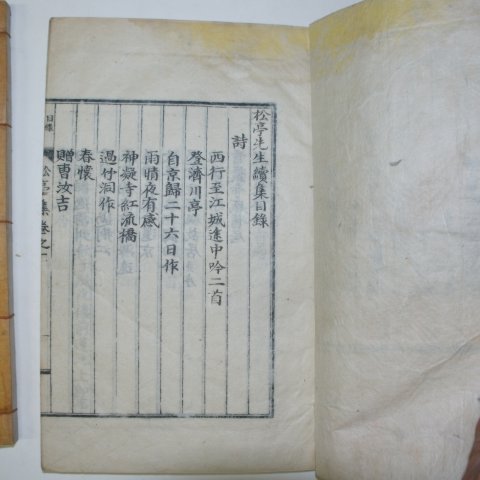 松亭先生續集目錄
詩
西行至江城途中吟二首
登濟川亭
自京歸二十六日作
雨晴夜有感
神凝寺紅流橋
過竹洞作
春懷
贈曺汝吉
目錄
松亭集卷之一